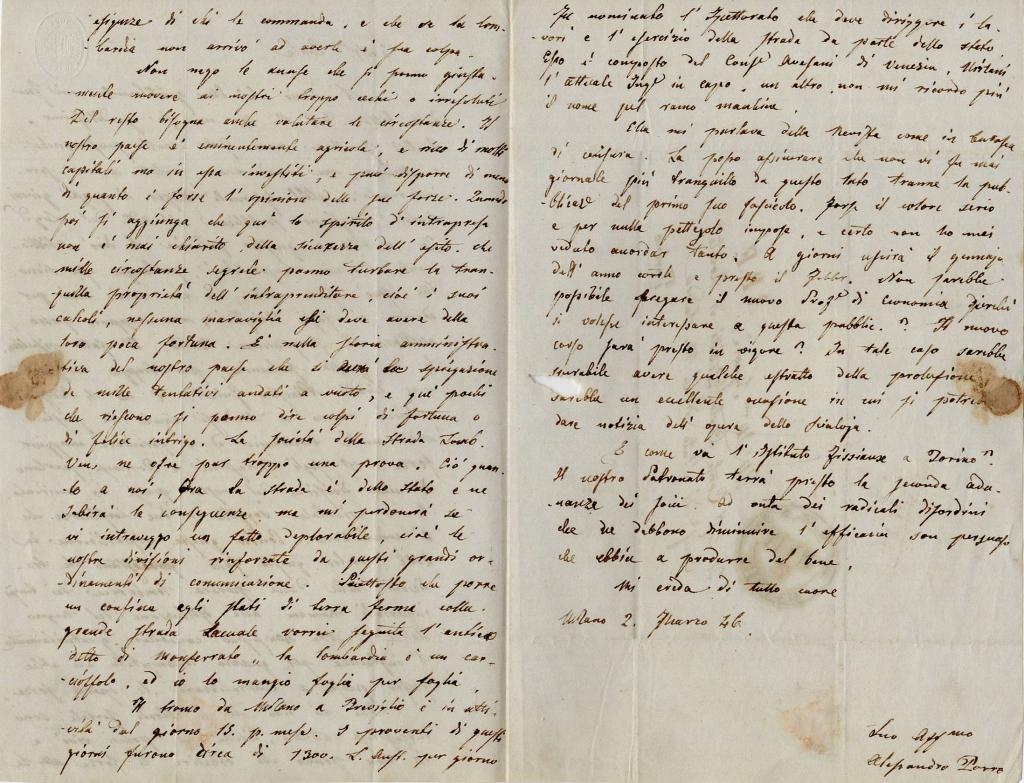 esigenze di chi le commanda, e che se la Lom-
bardia non arrivò ad averle è sua colpa.
Non nego le accuse che si ponno giusta-
mente movere ai nostri troppo cechi o irresoluti
Del resto bisogna anche valutare le circostanze. Il
nostro paese è eminentemente agricola, e ricco di molti
capitali ma in essa investiti, e può disporre di meno
di quanto è forse l'opinione delle sue forze. Quando
poi si aggiunga che quì lo spirito d'intrapresa
non è mai chiarito della sicurezza dell'esito. che
mille circostanze segrete ponno turbare la tran-
quilla proprietà dell'intraprenditore, cioè i suoi
calcoli, nessuna maraviglia si deve avere della
loro poca fortuna. È nella storia amministra-
tiva del nostro paese che si spiegazione
de mille tentativi andati a vuoto, e quei pochi
che riescono si ponno dire colpi di fortuna o
di felice intrigo. La società della strada Lomb.
Ven. ne ofre pur troppo una prova. Ciò quan-
to a noi, Ora la strada è dello stato e ne
subirà le conseguenze ma mi perdonerà se
vi intraveggo un fatto deplorabile, cioè le
nostre divisioni rinforzate da questi grandi or-
dinamenti di comunicazione. Piuttosto che porre
un confine agli stati di terra ferma colla
grande strada Lacuale vorrei seguita l'antico
detto di Monferrato „ la Lombardia è un car-
cioffolo, ed io lo mangio foglia per foglia
Il tronco da Milano a Treviglio è in atti-
vità dal giorno 15. p. mese. I proventi di questi
giorni furono circa di 1300. L. Aust. per giorno
Fu nominato l'Ispettorato che deve diriggere i la-
vori e l'esercizio della strada da parte dello stato
Esso è composto del Consr Avesani di Venezia,
l'attuale Ingr in capo, un altro, non mi ricordo più
il nome pel ramo macchine.
Ella mi parlava della Rivista come in
di censura. La posso assicurare che non vi fu mai
giornale più tranquillo da questo lato tranne la pub-
blicaze del primo suo fascicolo. Forse il colore serio
e per nulla pettegolo impose, e certo non ho mai
veduto accordar tanto. A giorni uscirà il gennajo
dell'anno corrte e presto il Febbr. Non sarebbe
possibile pregare il nuovo Profre di Economia perchè
si volesse interessare a questa pubblic.? Il nuovo
corso sarà presto in vigore? In tale caso sarebbe
sperabile avere qualche estratto della prolusione
sarebbe un eccellente occasione in cui si potrebbe
dare notizia dell'opera dello Scialoja.
E come va l'Istituto Fissiaux a Torino?
Il nostro Patronato terrà presto la seconda adu-
nanza dei Socii. ad onta dei radicali disordini
che ne debbono diminuire l'efficacia son persuaso
che abbia a produrre del bene.
Mi creda di tutto cuore
Milano 2. Marzo 46.
Suo Affmo
Alessandro Porro